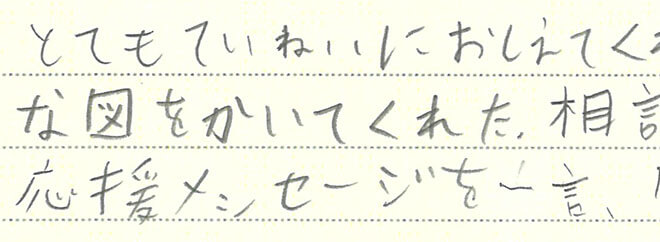 とてもていねいにおしえてく
な図をかいてくれた。相
応援メッセージを一言、